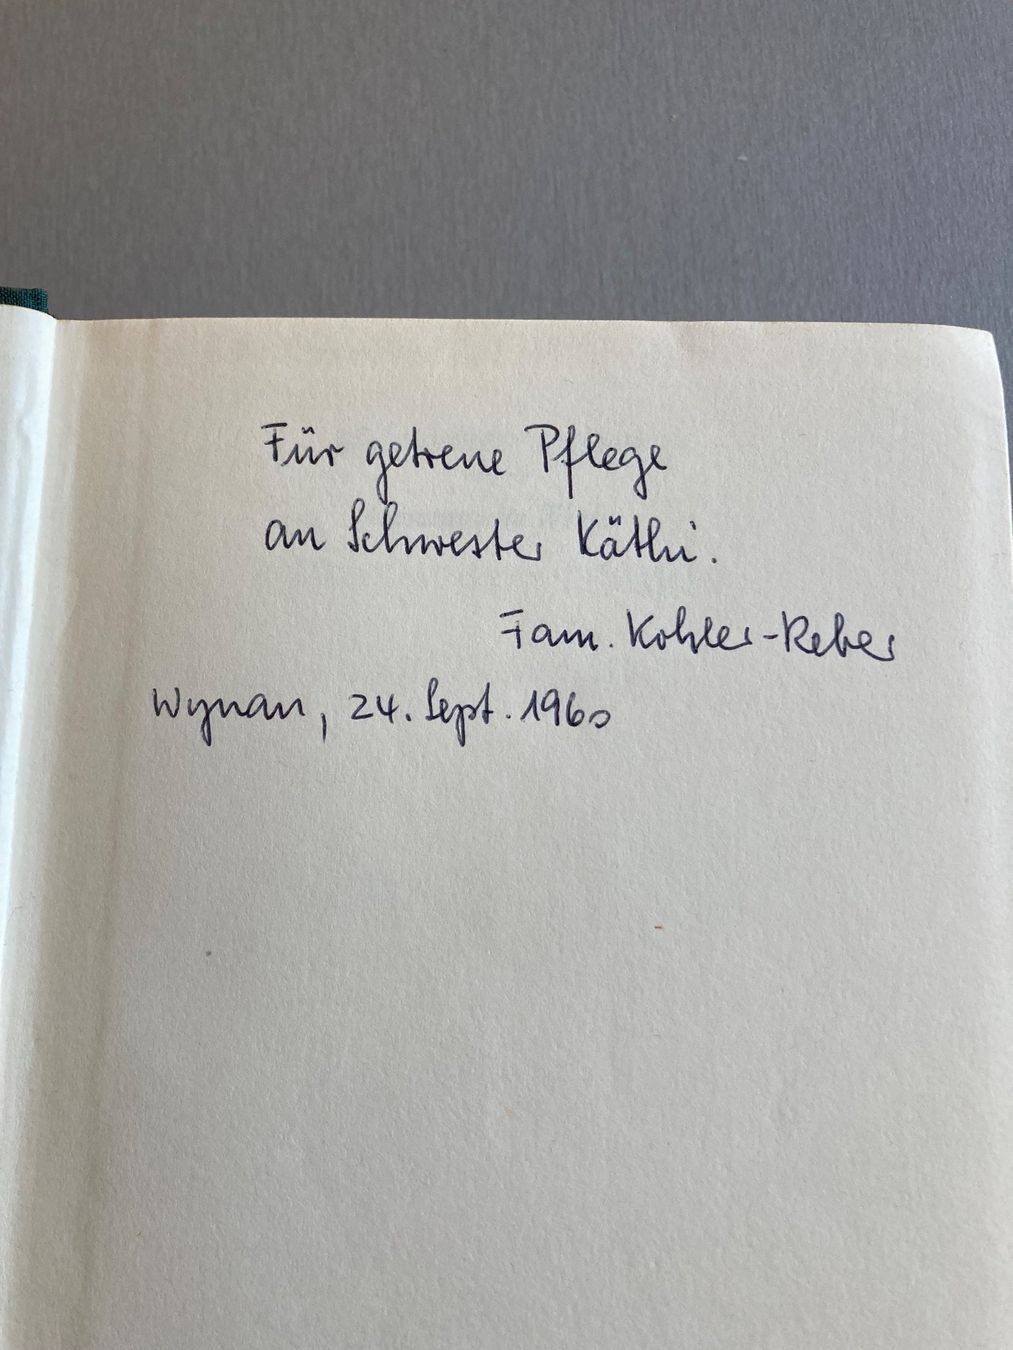 Für getreue Pflege
an Schwester Käthi.
Fam. Kohler-Reber
Wynau, 24. Sept. 1960